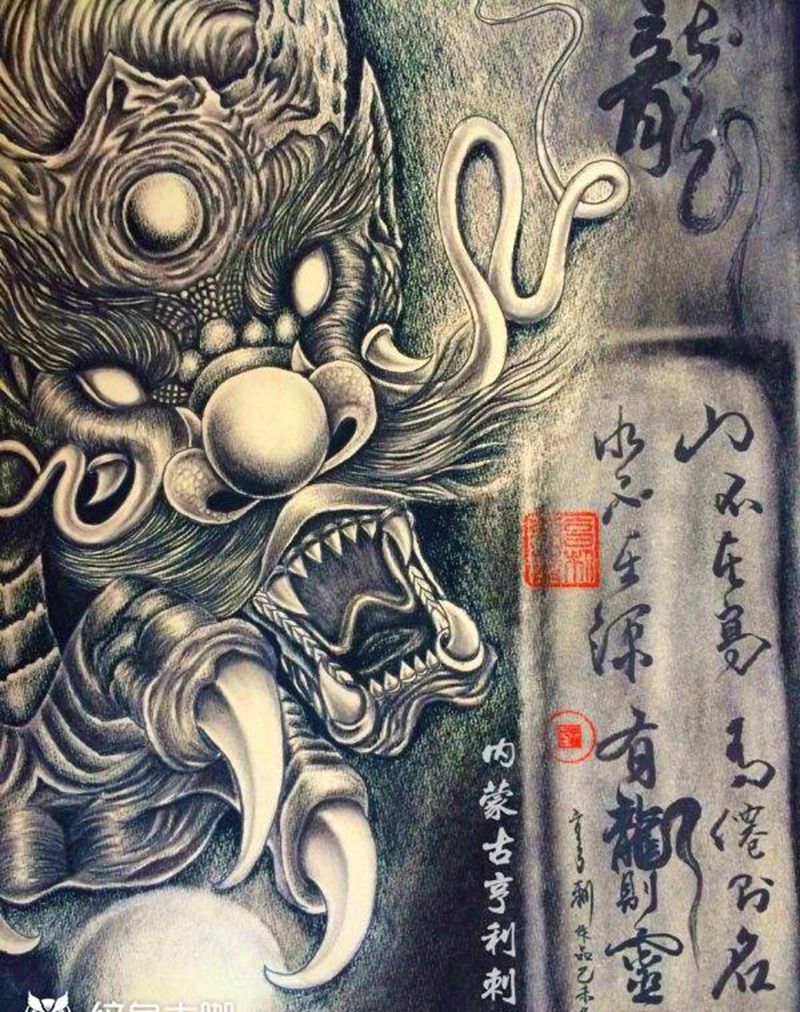 龍
山不在高 有僊則名
水不在深 有龍則靈
作品乙未
内蒙古亨利刺